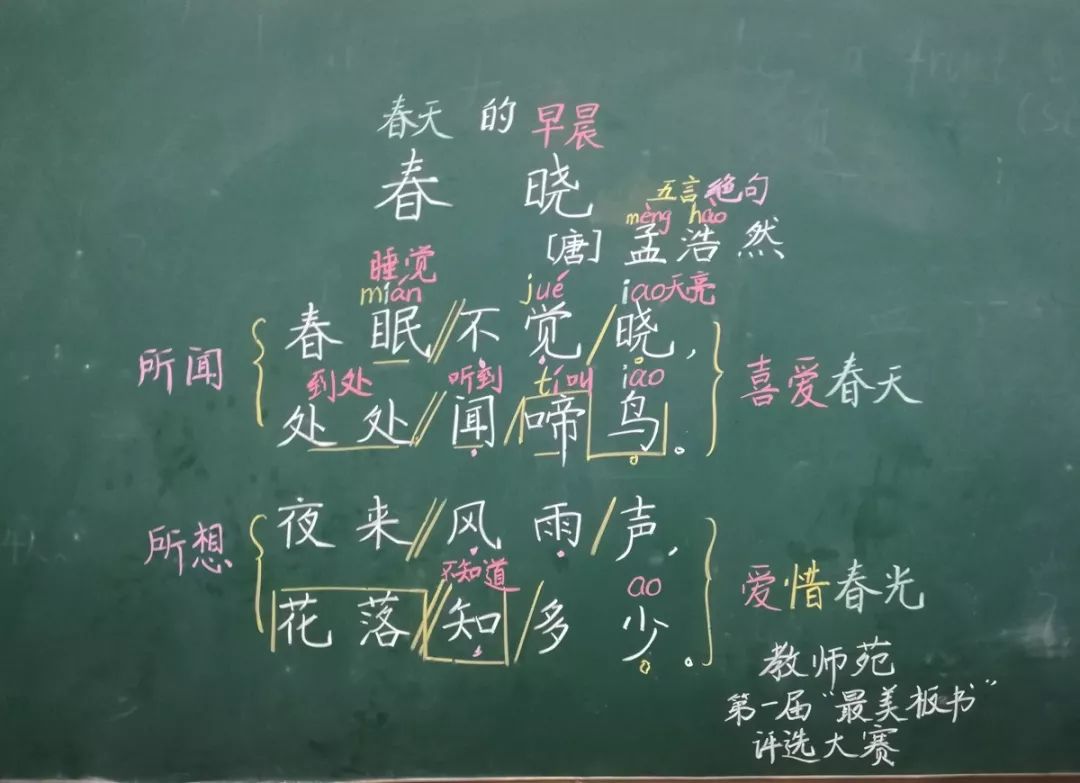 春天的早晨
春晓
五言绝句
mèng hào
[唐]孟浩然
睡觉
mián jué iao天亮
春眠//不觉/晓，
所闻
到处 听到 tí叫 iao
喜爱春天
处处//闻/啼鸟。
夜来//风雨/声，
所想
不知道 ao
爱惜春光
花落//知/多少。
教师苑
第一届“最美板书”
评选大赛